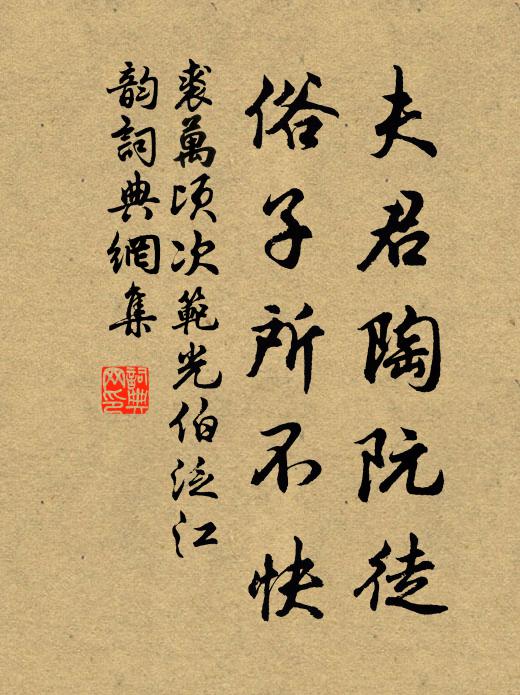 夫君陶阮徒
俗子所不快
裘萬頃次範光伯泛江
韵詞典網集
詞典网印